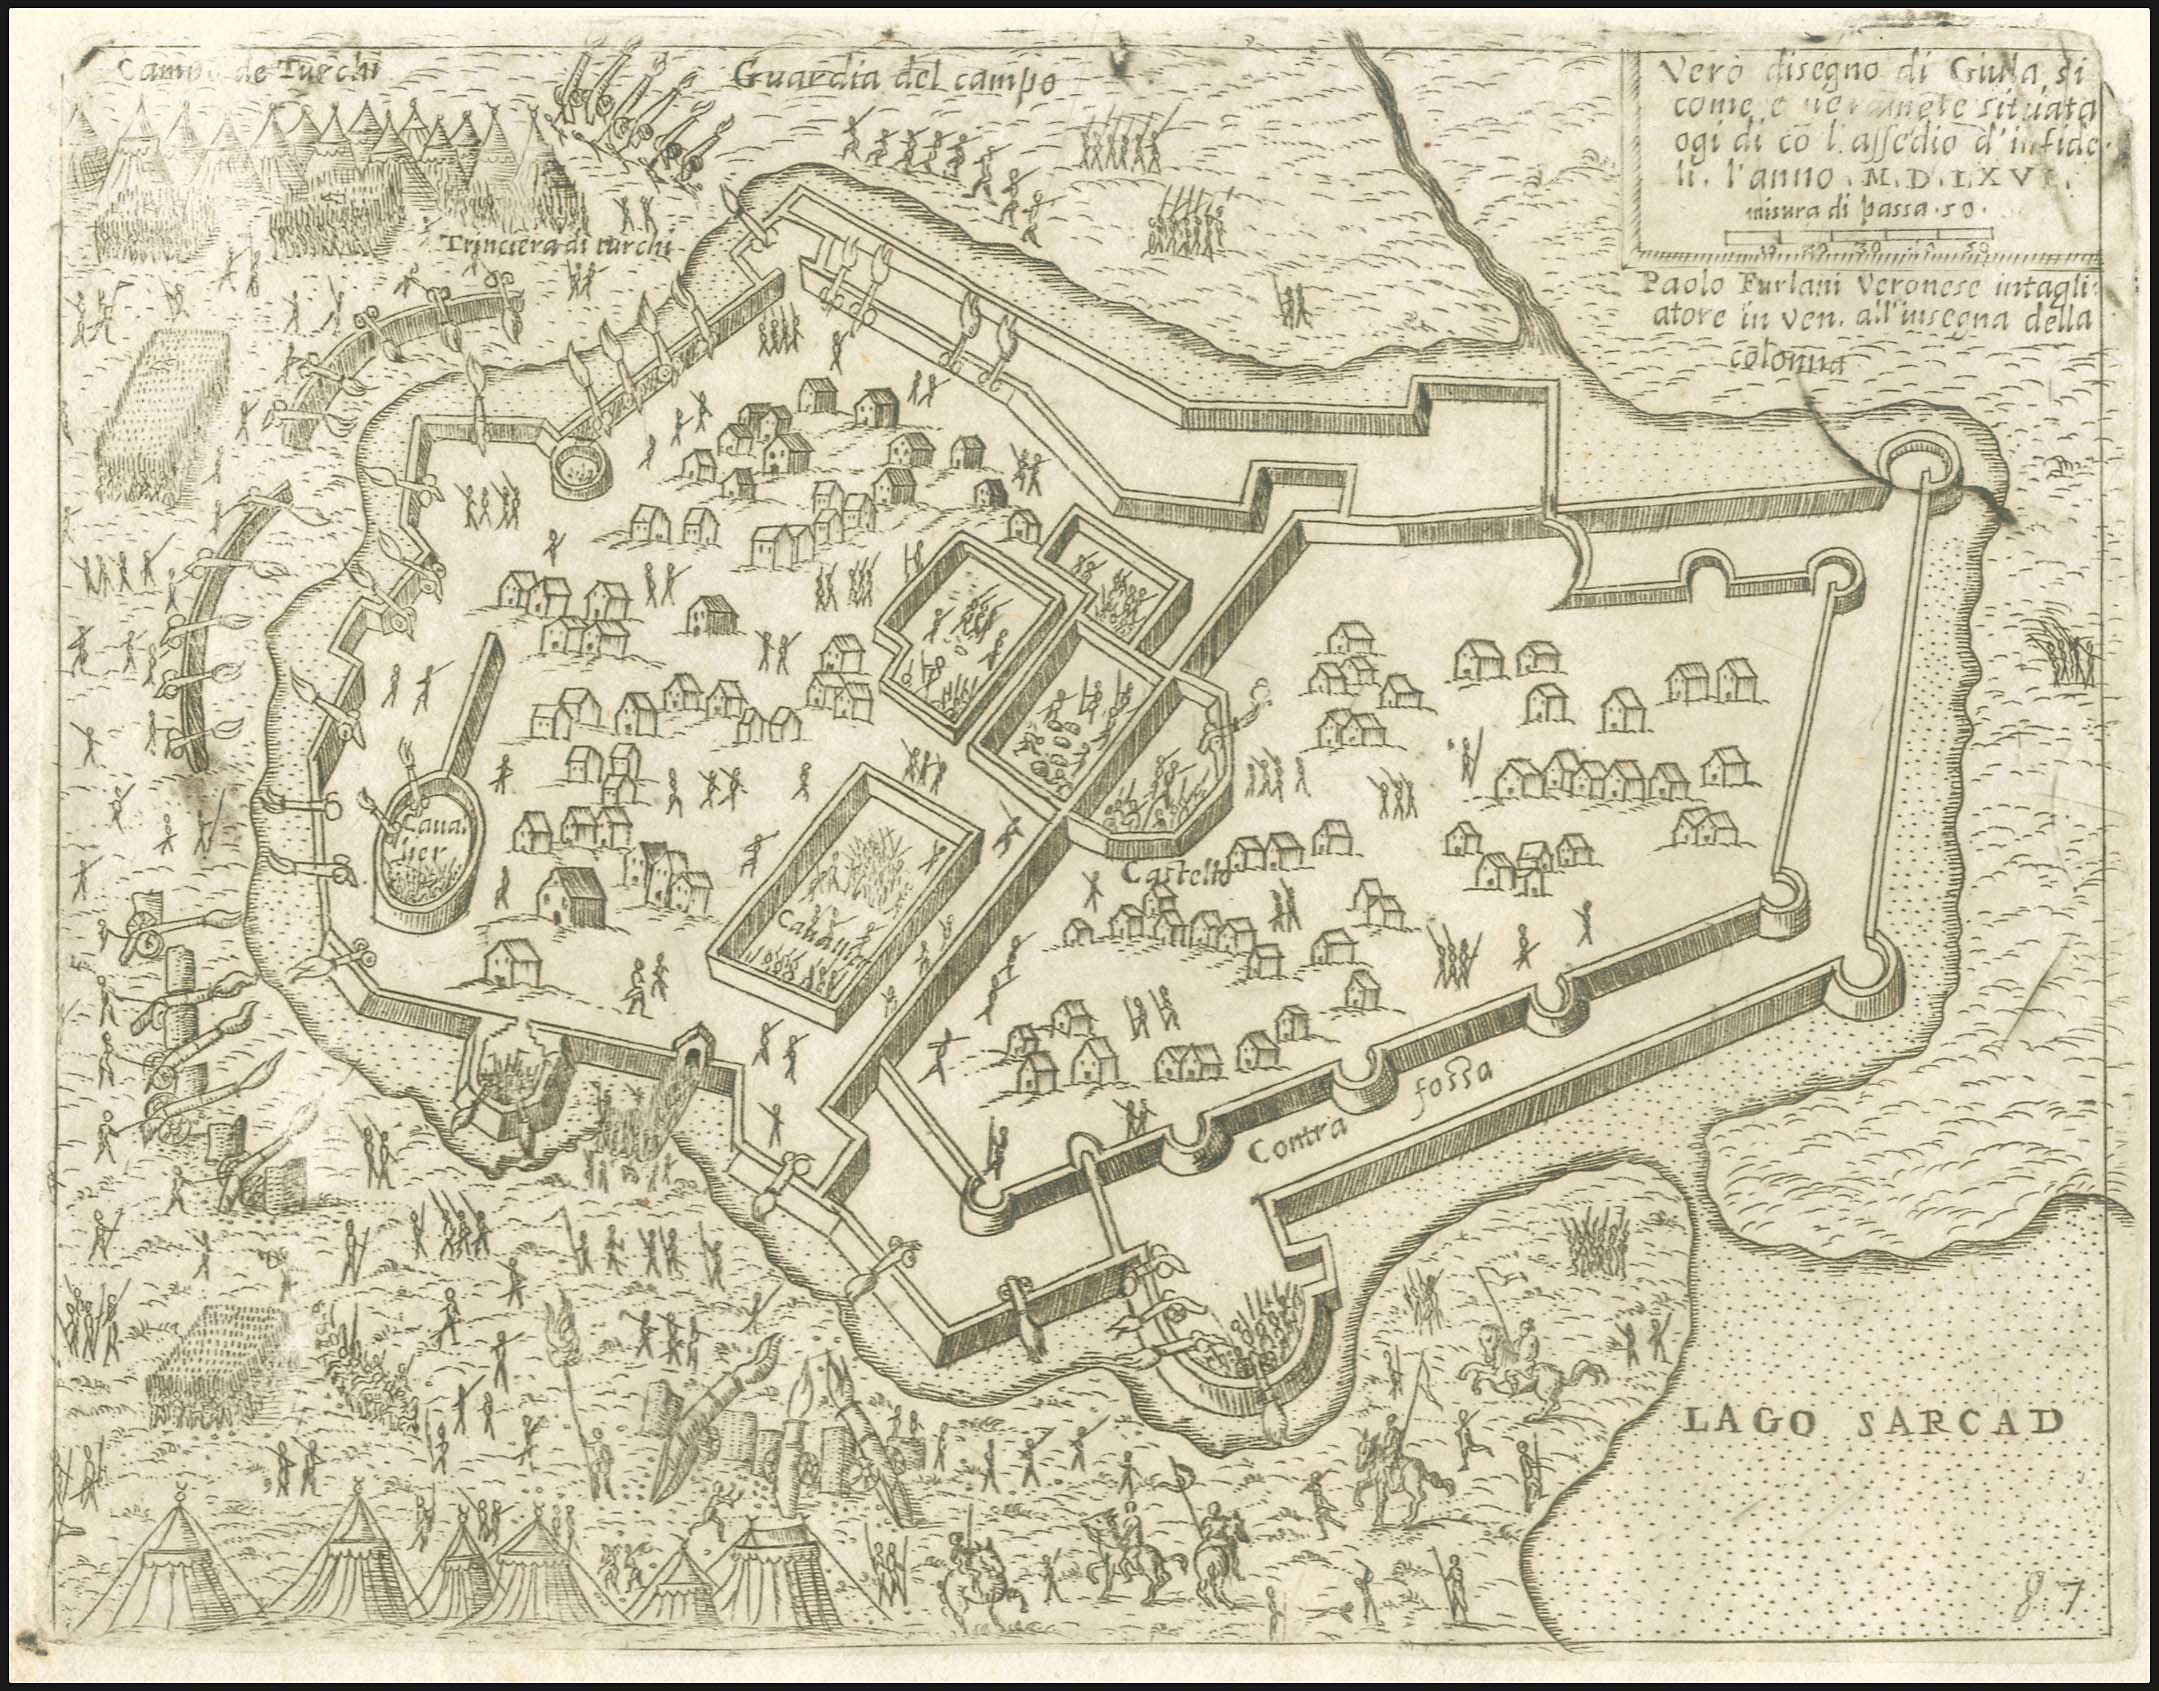 Campo de Turchi
Guardia del campo
Vero disegno di Giula, si
come e veramēte situata
ogi di cō l'assedio d'infide-
li. l'anno. M.D.LXVI.
misura di passa. 50.
10 20 30 40 50
Paolo Furlani Veronese intagli-
atore in Ven. all'insegna della
colonna
Trinciera di turchi
Caua.
lier
Castello
Contra fossa
LAGO SARCAD
87